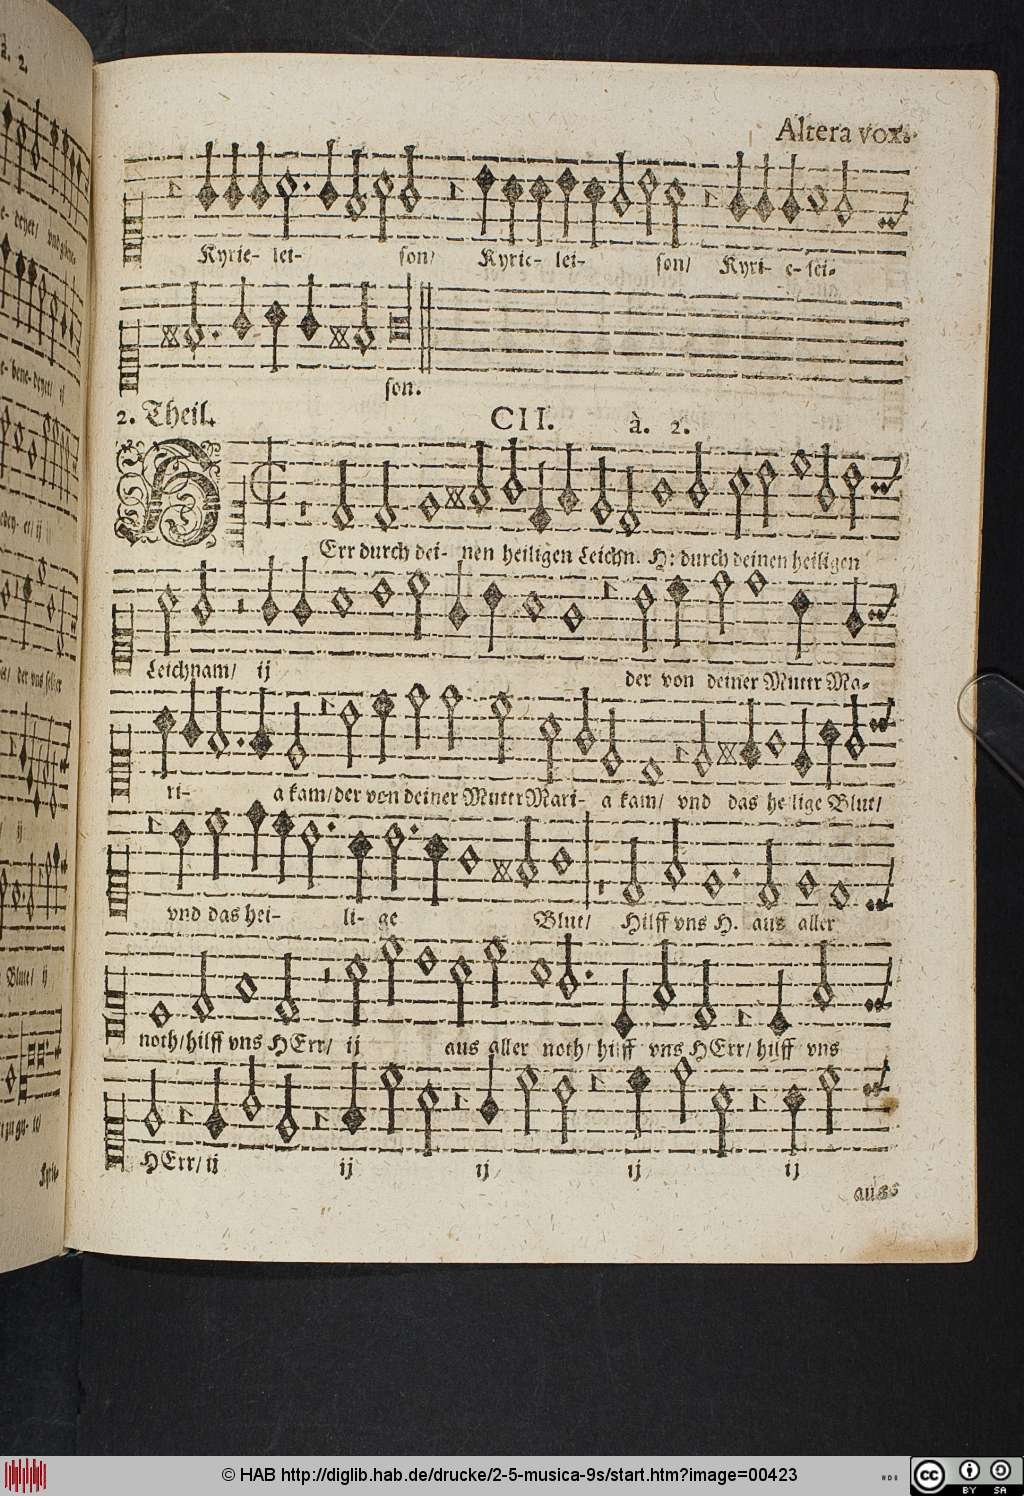 Altera vox.
Kyrie- lei- son/ Kyrie- lei- son/ Kyri- e- lei-
son.
2. Theil. CII. à. 2.
HErr durch dei- nen heiligen Leichn. H: durch deinen heiligen
Leichnam/ ij der von deiner Muttr Ma-
ri- a kam/ der von deiner Muttr Mari- a kam/ vnd das heilige Blut/
vnd das hei- li- ge Blut/ Hilff vns H. aus aller
noth/ hilff vns HErr/ ij aus aller noth/ hilff vns HErr/ hilff vns
HErr/ ij ij ij ij ij
auss
à. 2.
© HAB http://diglib.hab.de/drucke/2-5-musica-9s/start.htm?image=00423
cc BY SA